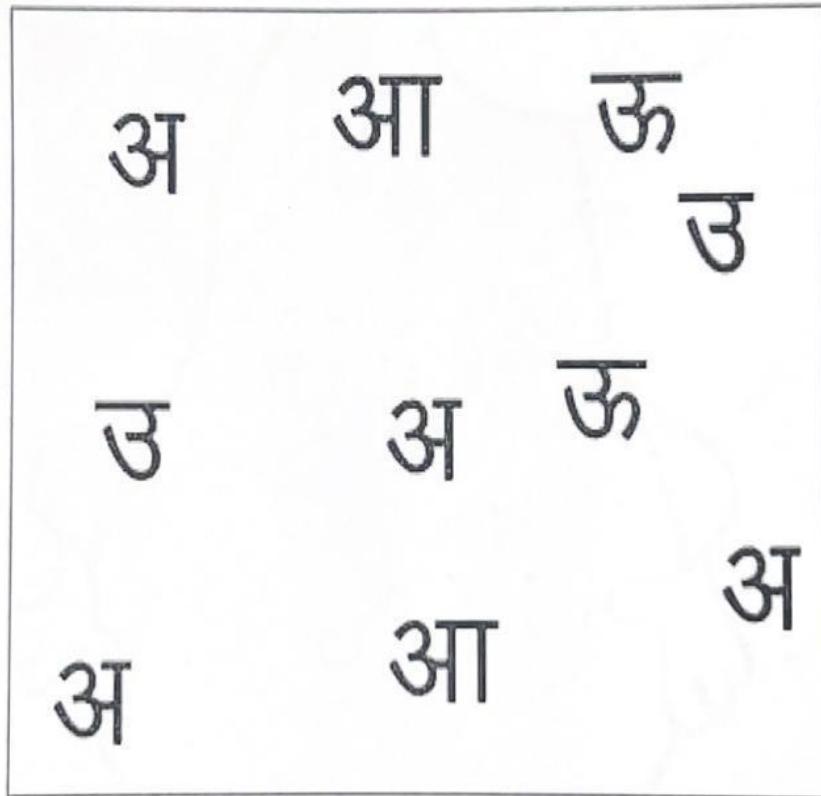 अ आ ऊ
उ
उ अ ऊ
अ
अ आ